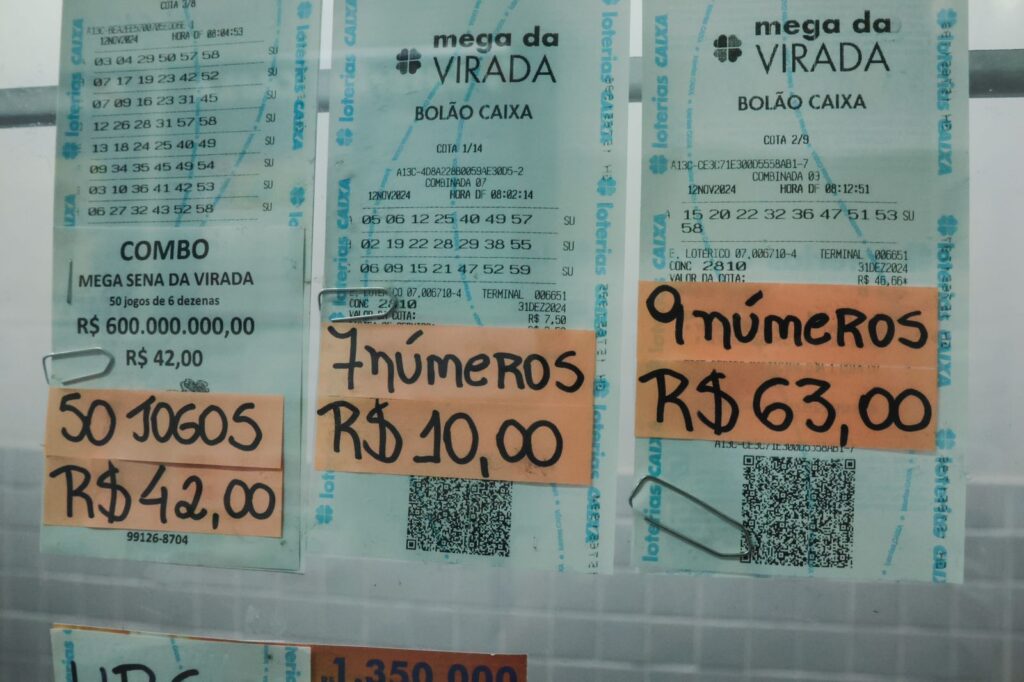 COTA 3/8
12NOV2024 HORA DF 08:04:53
03 04 29 50 57 58 SU
07 17 19 23 42 52 SU
07 09 16 23 31 45 SU
12 26 28 31 57 58 SU
13 18 24 25 40 49 SU
09 34 35 45 49 54 SU
03 10 36 41 42 53 SU
06 27 32 43 52 58 SU
COMBO
MEGA SENA DA VIRADA
50 jogos de 6 dezenas
R$ 600.000.000,00
R$ 42,00
50 JOGOS
R$ 42,00
99126-8704
loterias CAIXA
mega da
VIRADA
BOLÃO CAIXA
COTA 1/14
A13C-4D8A228B0059AE30D5-2
COMBINADA 07
12NOV2024 HORA DF 08:02:14
A 05 06 12 25 40 49 57 SU
02 19 22 28 29 38 55 SU
06 09 15 21 47 52 59 SU
E. LOTÉRICO 07,006710-4 TERMINAL 006651
CONC 2810 31DEZ2024
VALOR DA COTA: R$ 7,50
7 números
R$ 10,00
loterias CAIXA
mega da
VIRADA
BOLÃO CAIXA
COTA 2/9
A13C-CE3C71E300D5558AB1-7
COMBINADA 09
12NOV2024 HORA DF 08:12:51
A 15 20 22 32 36 47 51 53 SU
58
E. LOTÉRICO 07,006710-4 TERMINAL 006651
CONC 2810 31DEZ2024
VALOR DA COTA: R$ 46,66*
9 números
R$ 63,00
A13C-CE3C71E300D5558AB1-7
loterias CAIXA
1.350.000